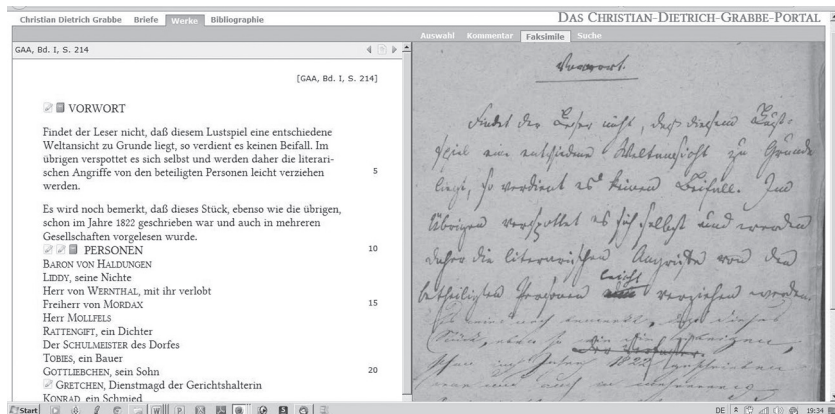 Christian Dietrich Grabbe Briefe Werke Bibliographie
DAS CHRISTIAN-DIETRICH-GRABBE-PORTAL
Auswahl Kommentar Faksimile Suche
GAA, Bd. I, S. 214
[GAA, Bd. I, S. 214]
VORWORT
Findet der Leser nicht, daß diesem Lustspiel eine entschiedene
Weltansicht zu Grunde liegt, so verdient es keinen Beifall. Im
übrigen verspottet es sich selbst und werden daher die literari-
schen Angriffe von den beteiligten Personen leicht verziehen 5
werden.
Es wird noch bemerkt, daß dieses Stück, ebenso wie die übrigen,
schon im Jahre 1822 geschrieben war und auch in mehreren
Gesellschaften vorgelesen wurde.
PERSONEN 10
BARON VON HALDUNGEN
LIDDY, seine Nichte
Herr von WERNTHAL, mit ihr verlobt
Freiherr von MORDAX 15
Herr MOLLFELS
RATTENGIFT, ein Dichter
Der SCHULMEISTER des Dorfes
TOBIES, ein Bauer
GOTTLIEBCHEN, sein Sohn 20
GRETCHEN, Dienstmagd der Gerichtshalterin
KONRAD, ein Schmied
Vorwort.
Findet der Leser nicht, daß diesem Lust-
spiel eine entschiedene Weltansicht zu Grunde
liegt, so verdient es keinen Beifall. Im
Übrigen verspottet es sich selbst und werden
daher die literarischen Angriffe von den
leicht
betheiligten Personen verziehen werden.
Es wird noch bemerkt, daß dieses
Stück, wie die übrigen,
schon im Jahre 1822 geschrieben
war und auch in mehreren
Start
DE 19:34